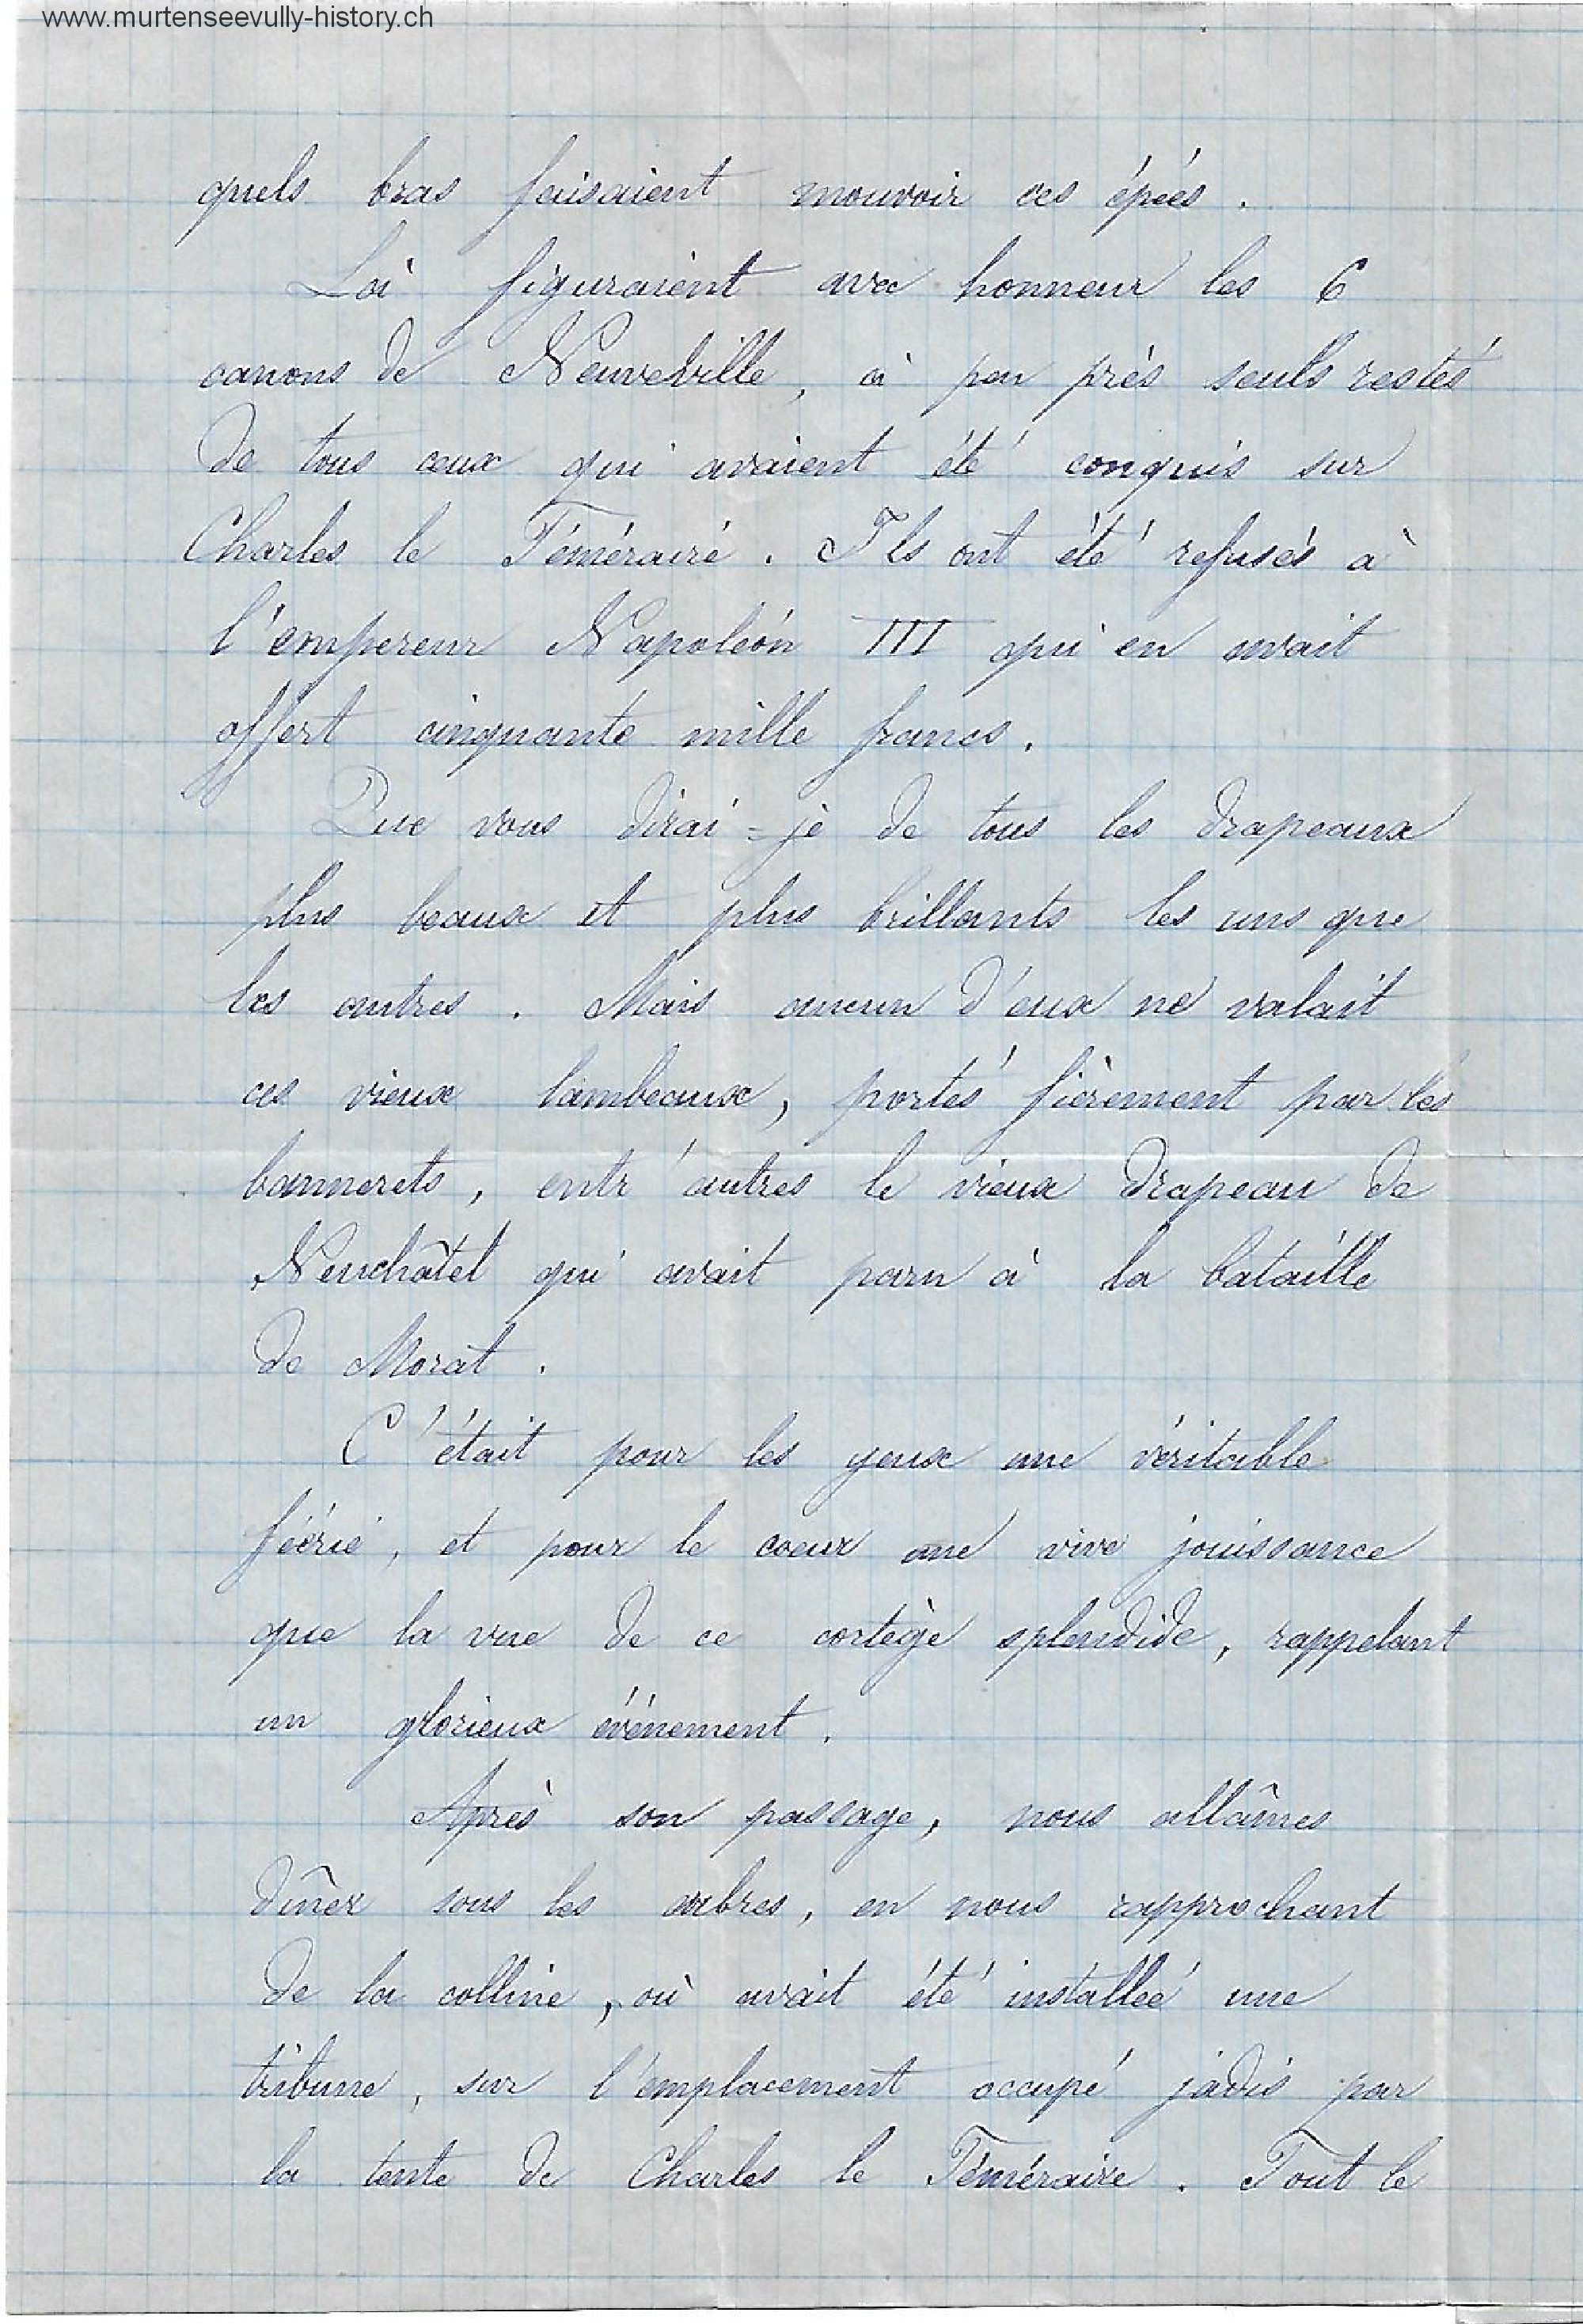 www.murtenseevully-history.ch
quels bras faisaient mouvoir ces épées.
Là figuraient avec honneur les 6
canons de Neuveville, à peu près seuls restés
de tous ceux qui avaient été conquis sur
Charles le Téméraire. Ils ont été refusés à
l'empereur Napoléon III qui en avait
offert cinquante mille francs.
Que vous dirai=je de tous les drapeaux
plus beaux et plus brillants les uns que
les autres. Mais aucun d'eux ne valait
ces vieux lambeaux, portés fièrement par les
bannerets, entr'autres le vieux drapeau de
Neuchâtel qui avait paru à la bataille
de Morat.
C'était pour les yeux une véritable
féérie, et pour le coeur une vive jouissance
que la vue de ce cortège splendide, rappelant
un glorieux événement.
Après son passage, nous allâmes
dîner sous les arbres, en nous rapprochant
de la colline, où avait été installée une
tribune, sur l'emplacement occupé jadis par
la tente de Charles le Téméraire. Tout le